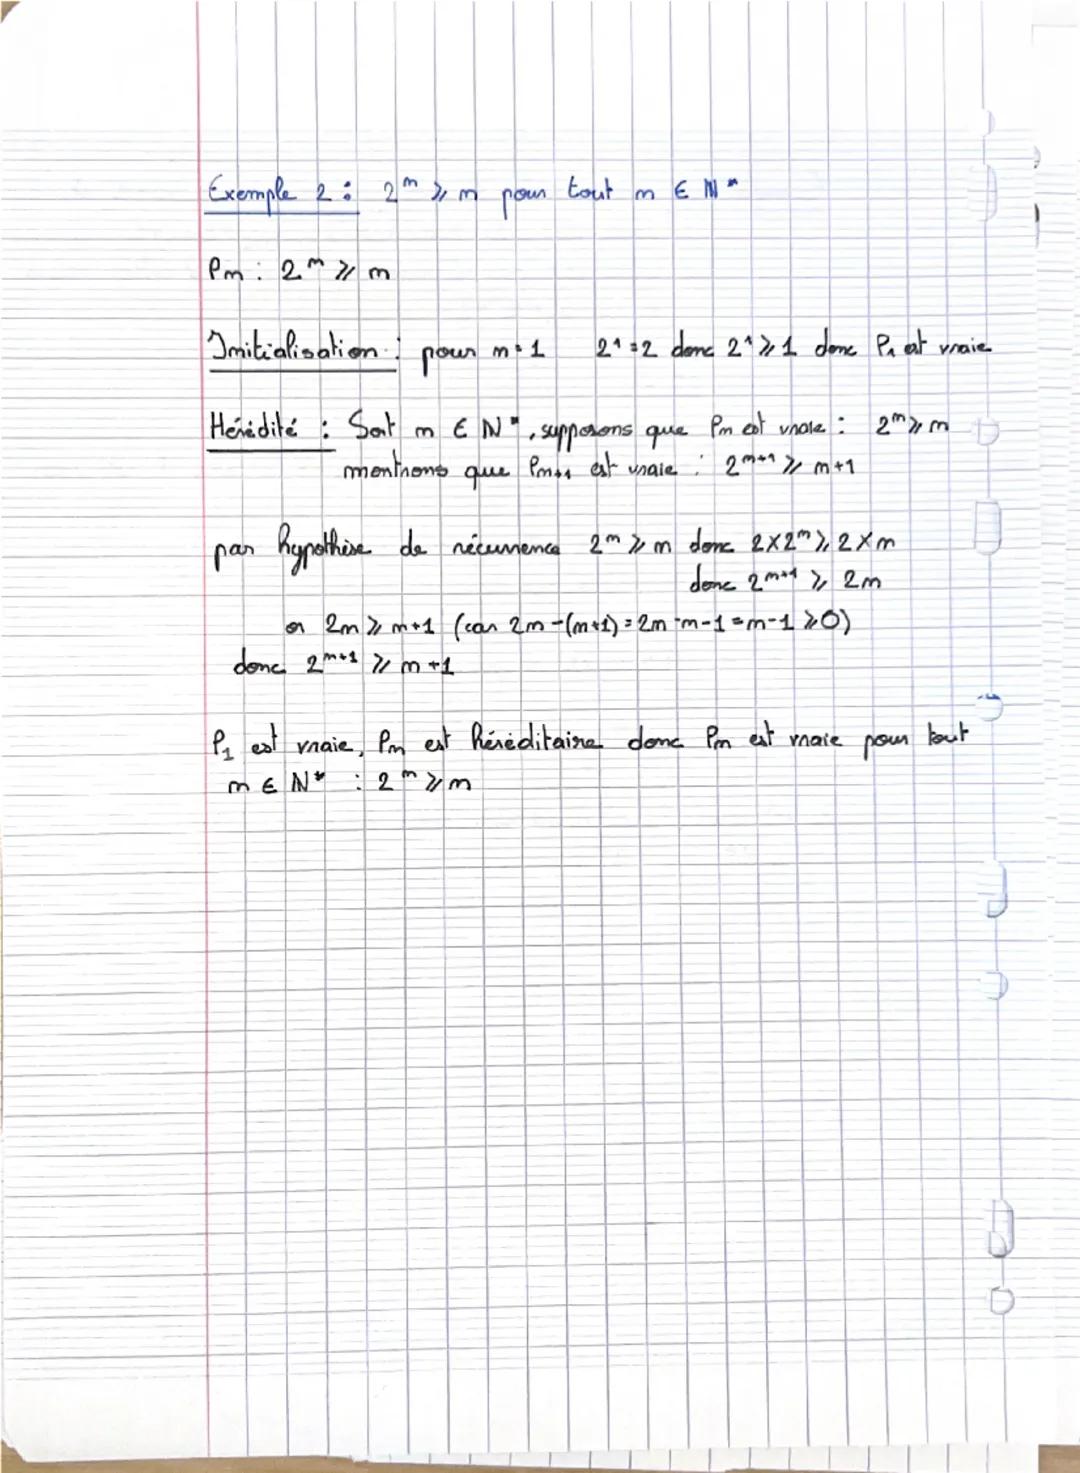 Exemple 2 : 2^n ⩾ n pour tout n ∈ ℕ*
Pn : 2^n ⩾ n
Initialisation : pour n=1 2^1=2 donc 2^1 ⩾ 1 donc P1 est vraie
Hérédité : Soit n ∈ ℕ*, supposons que Pn est vraie : 2^n ⩾ n
montrons que Pn+1 est vraie : 2^n+1 ⩾ n+1
par hypothèse de récurrence 2^n ⩾ n donc 2×2^n ⩾ 2×n
donc 2^n+1 ⩾ 2n
or 2n ⩾ n+1 (car 2n-(n+1)=2n-n-1=n-1 ⩾0)
donc 2^n+1 ⩾ n+1
P1 est vraie, Pn est héréditaire donc Pn est vraie pour tout
n ∈ ℕ* : 2^n ⩾ n